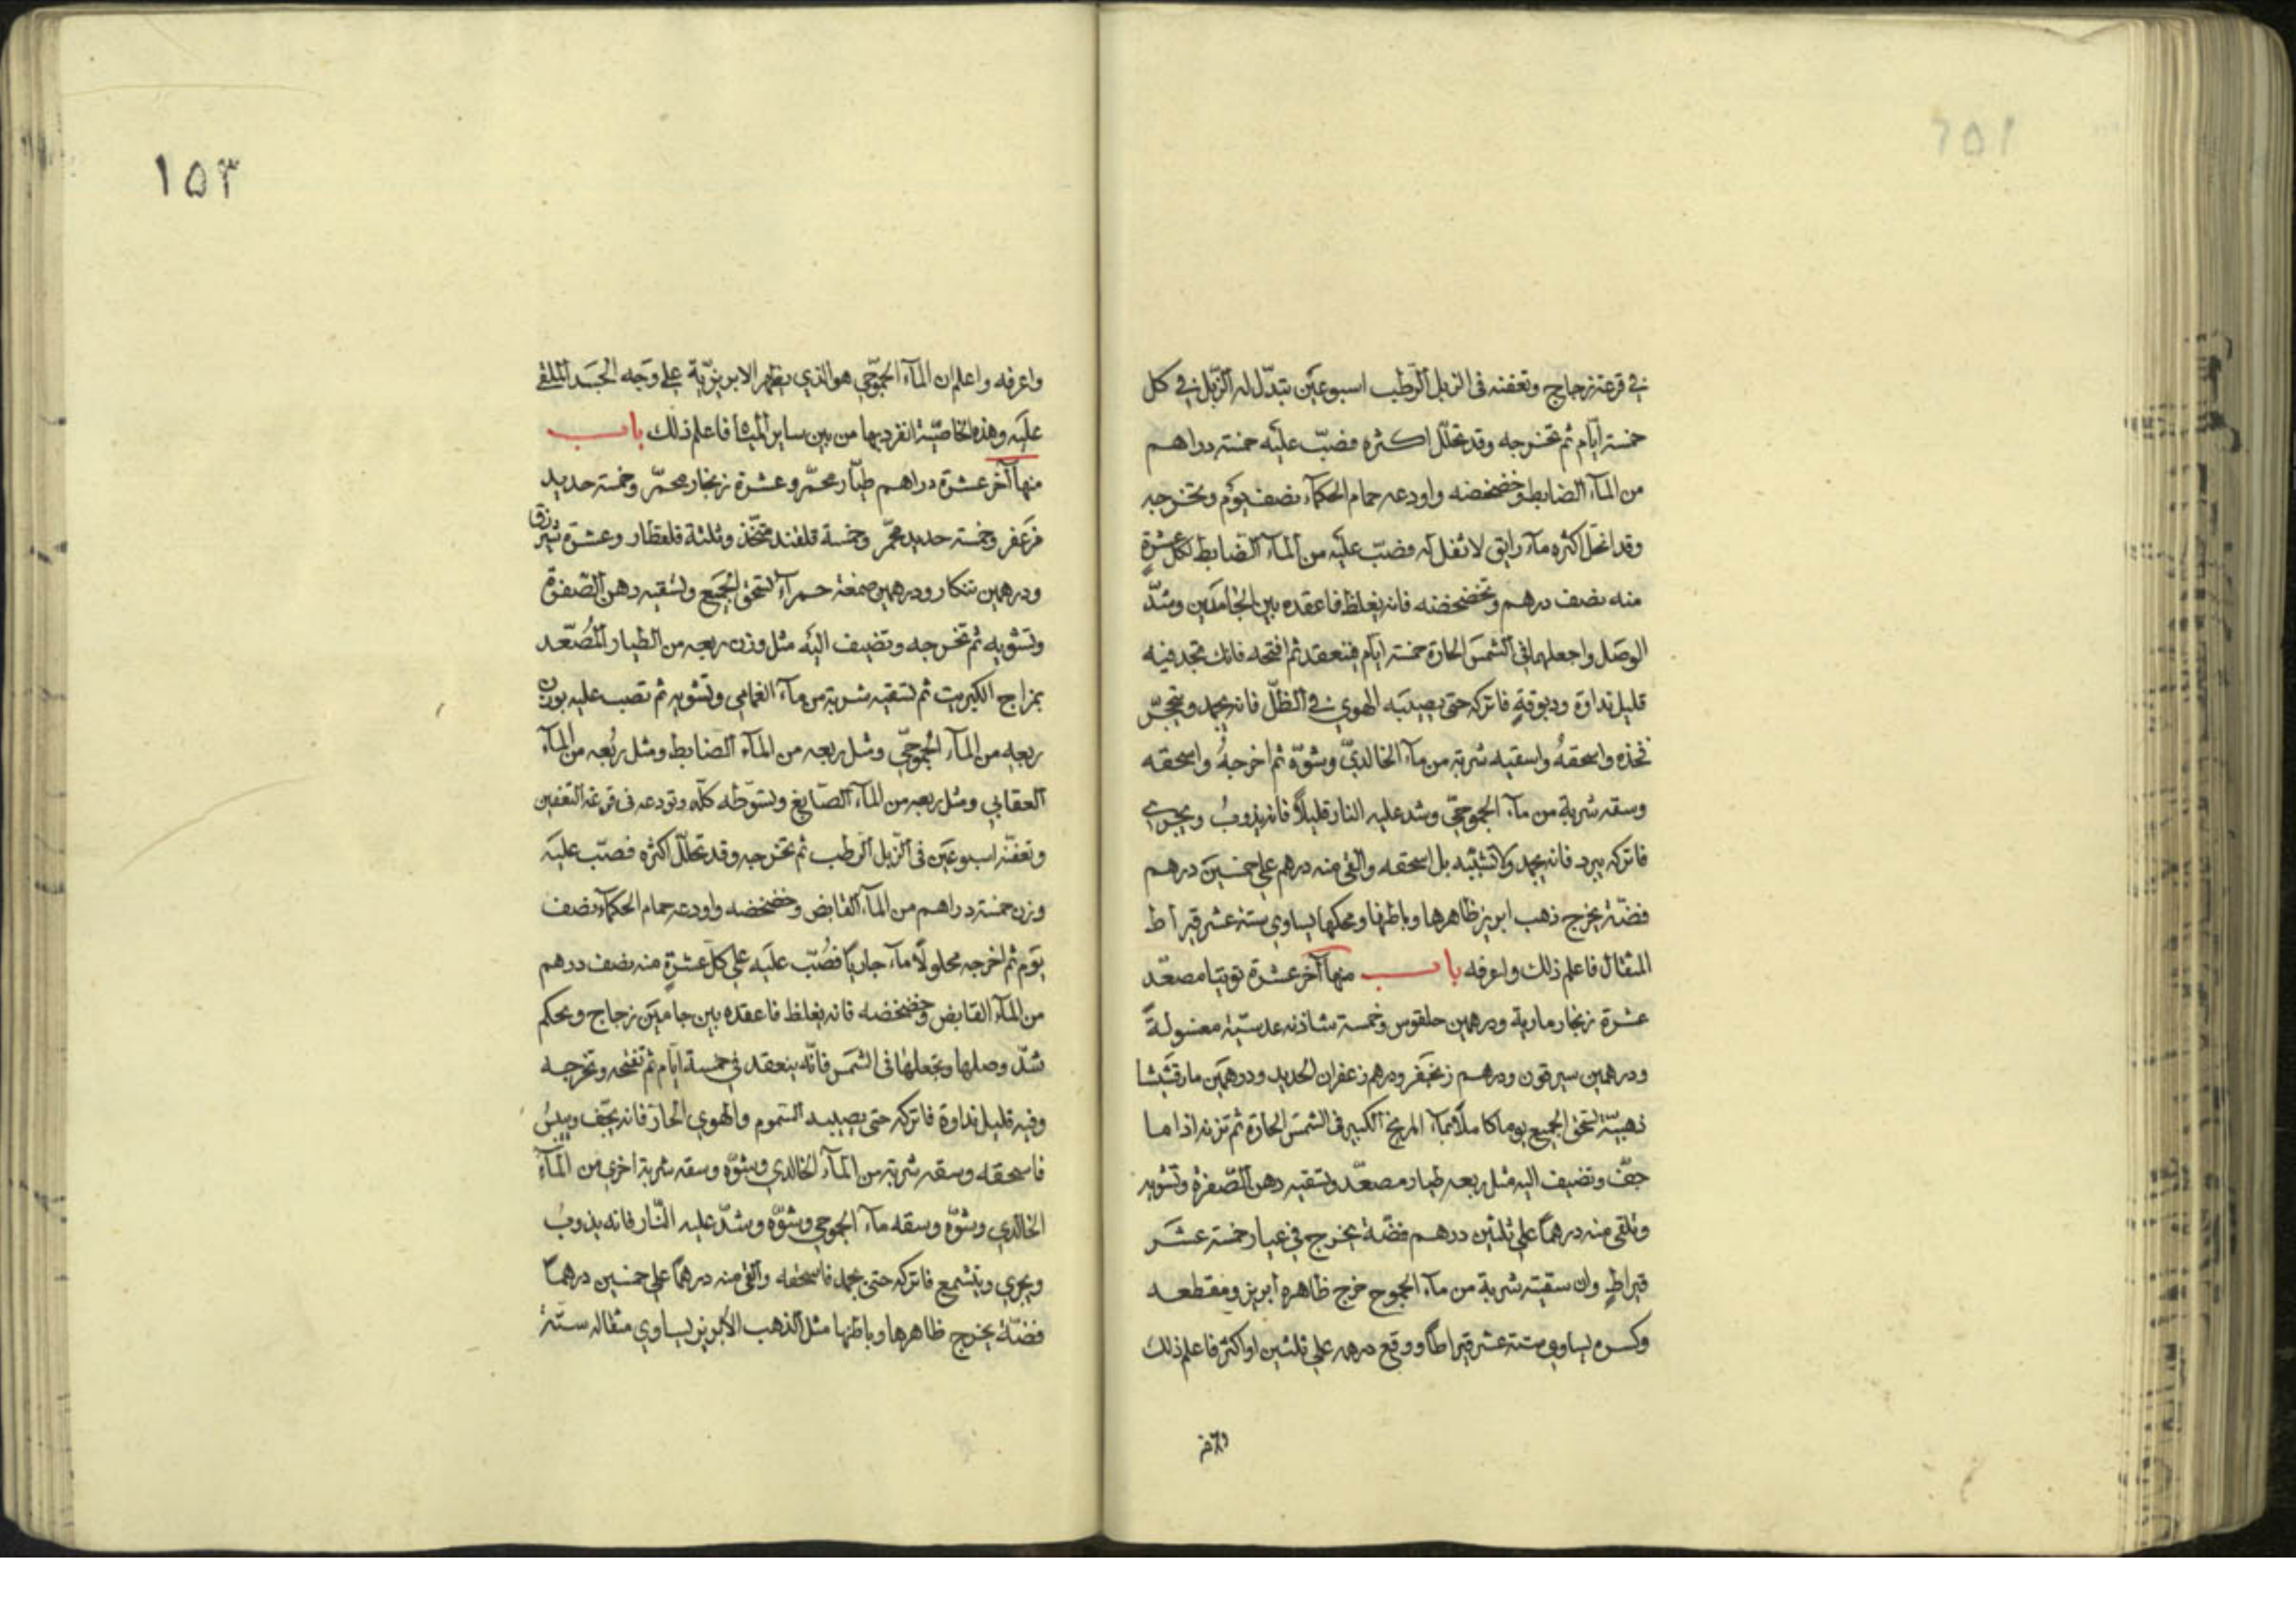 في قرعة زجاج وتعفنه فى الزبل الرّطب اسبوعَين تبدّل له الزّبل في كل
خمسة ايّام ثم تخرجه وقد تحلّل اكثره فصبّ علَيه خمسة دراهم
من المآء الضابط وخضخضه واودعه حمام الحكمآء نصف يوَم وتخرجه
وقد انحل اكثره مآء رايق لا ثفل له فصبّ علَيه من المآء الضابط لكل عشرةٍ
منه نصف درهم وتخضخضه فانه يغلظ فاعقده بين الجامَين وشدّ
الوصَل واجعلهما في الشمسَ الحارة خمسة ايام فينعقد ثم افتحه فانك تجد فيه
قليل نداوة ودبوقةٍ فاتركه حتى يصيبَه الهوي في الظلّ فانه يجمد ويتحجّر
فخذه واسحقهُ واسقيه شربة من مآء الخالديّ وشوّه ثم اخرجهُ واسحقه
وسقه شربة من مآء الجموحيّ وشد عليه النار قليلاً فانه يذوبُ ويجري
فاتركه يبرد فانه يجمد ولا تشبّبه بل اسحقه والقي منه درهم علي خمسَين درهم
فضّة يخرج ذهب ابريز ظاهرها وباطنها ومحكها يساوي ستة عشر قيراط
المثقال فاعلم ذلك واعرفه باب منها آخر عشرة توتيا مصعّد
عشرة زنجار مارية ودرهمين حلقوس وخمسة شاذنه عدسيّة مغسولةً
ودرهمين سيرقون ودرهم زنجَفر ودرهم زعفران الحديد ودرهمَين مارقشَيشا
ذهبيّة تسحق الجميع يوما كاملاً بمآء المريخ الكبير فى الشمسَ الحارة ثم تزنه اذا ما
جفّ وتضيف اليه مثل ربعه طيار مصعّد وتسقيه دهن الصّفرة وتشويه
وتلقى منه درهماً علي ثلثين درهم فضّة يخرج في عيار خمسة عشَر
قيراطٍ وان سقيته شربة من مآء الجموح خرج ظاهره ابريز ومقطعه
وكسره يساوي ستة عشر قيراطاً ووقع درهمه علي ثلثين او اكثر فاعلم ذلك
١٥٣
واعرفه واعلم ان المآء الجموّحي هو الذي يظهر الابريزيّة علي وَجه الجسَد الملقى
علَيه وهذه الخاصّية انفرد بها من بين ساير المياه فاعلم ذلك باب
منها آخر عشرة دراهم طيّار محمّر وعشرة زنجار محمّر وخمسة حديد
مزَعفر وخمسة حديد محمّر وخمسة قلقند متّخذ وثلثة قلقطار وعشرة زرق
ودرهمين تنكار ودرهمين صمغة حمرآء تسحق الجَميع وتسقيه دهن الصّفرة
وتشويه ثم تخرجه وتضيف اليَه مثل وزن ربعه من الطيار المُصَعّد
بمزاج الكبريت ثم تسقيه شربة من مآء الغمامي وتشويه ثم تصب عليه بوزن
ربعه من المآء الجموحيّ ومثل ربعه من المآء الضابط ومثل ربُعه من المآء
العقابي ومثل ربعه من المآء الصّابغ وتسوّطه كلّه وتودعه فى قرعة التعفين
وتعفّنه اسبوعَين فى الزّبل الرطب ثم تخرجه وقد تحلّل اكثره فصبّ عليَه
وزن خمسة دراهم من المآء القابض وخضخضه واودعه حمام الحكمآء نصف
يوَم ثم اخرجه محلولاً مآء جارياً فصُبّ علَيه علي كلّ عشرةٍ منه نصف درهم
من المآء القابض وخضخضه فانه يغلظ فاعقده بين جامَين زجاج ويحكم
شدّ وصلها وتجعلها فى الشمَس فانّه ينعقد في خمسة ايّام ثم تفتحه وتخرجه
وفيه قليل نداوة فاتركه حتى يصيبه السّموم والهوي الحار فانه يجّف وييبسُ
فاسحقه وسقه شربة من المآء الخالدي وشوّه وسقه شربة اخرى من المآء
الخالدي وشوّه وسقه مآء الجموحي وشوّه وشدّ عليه النّار فانه يذوبُ
ويجري ويتشمع فاتركه حتى يجمد فاسحقه والقي منه درهماً علي خمسين درهماً
فضّة يخرج ظاهرها وباطنها مثل الذهب الأبريز يساوي مثقاله ستّة